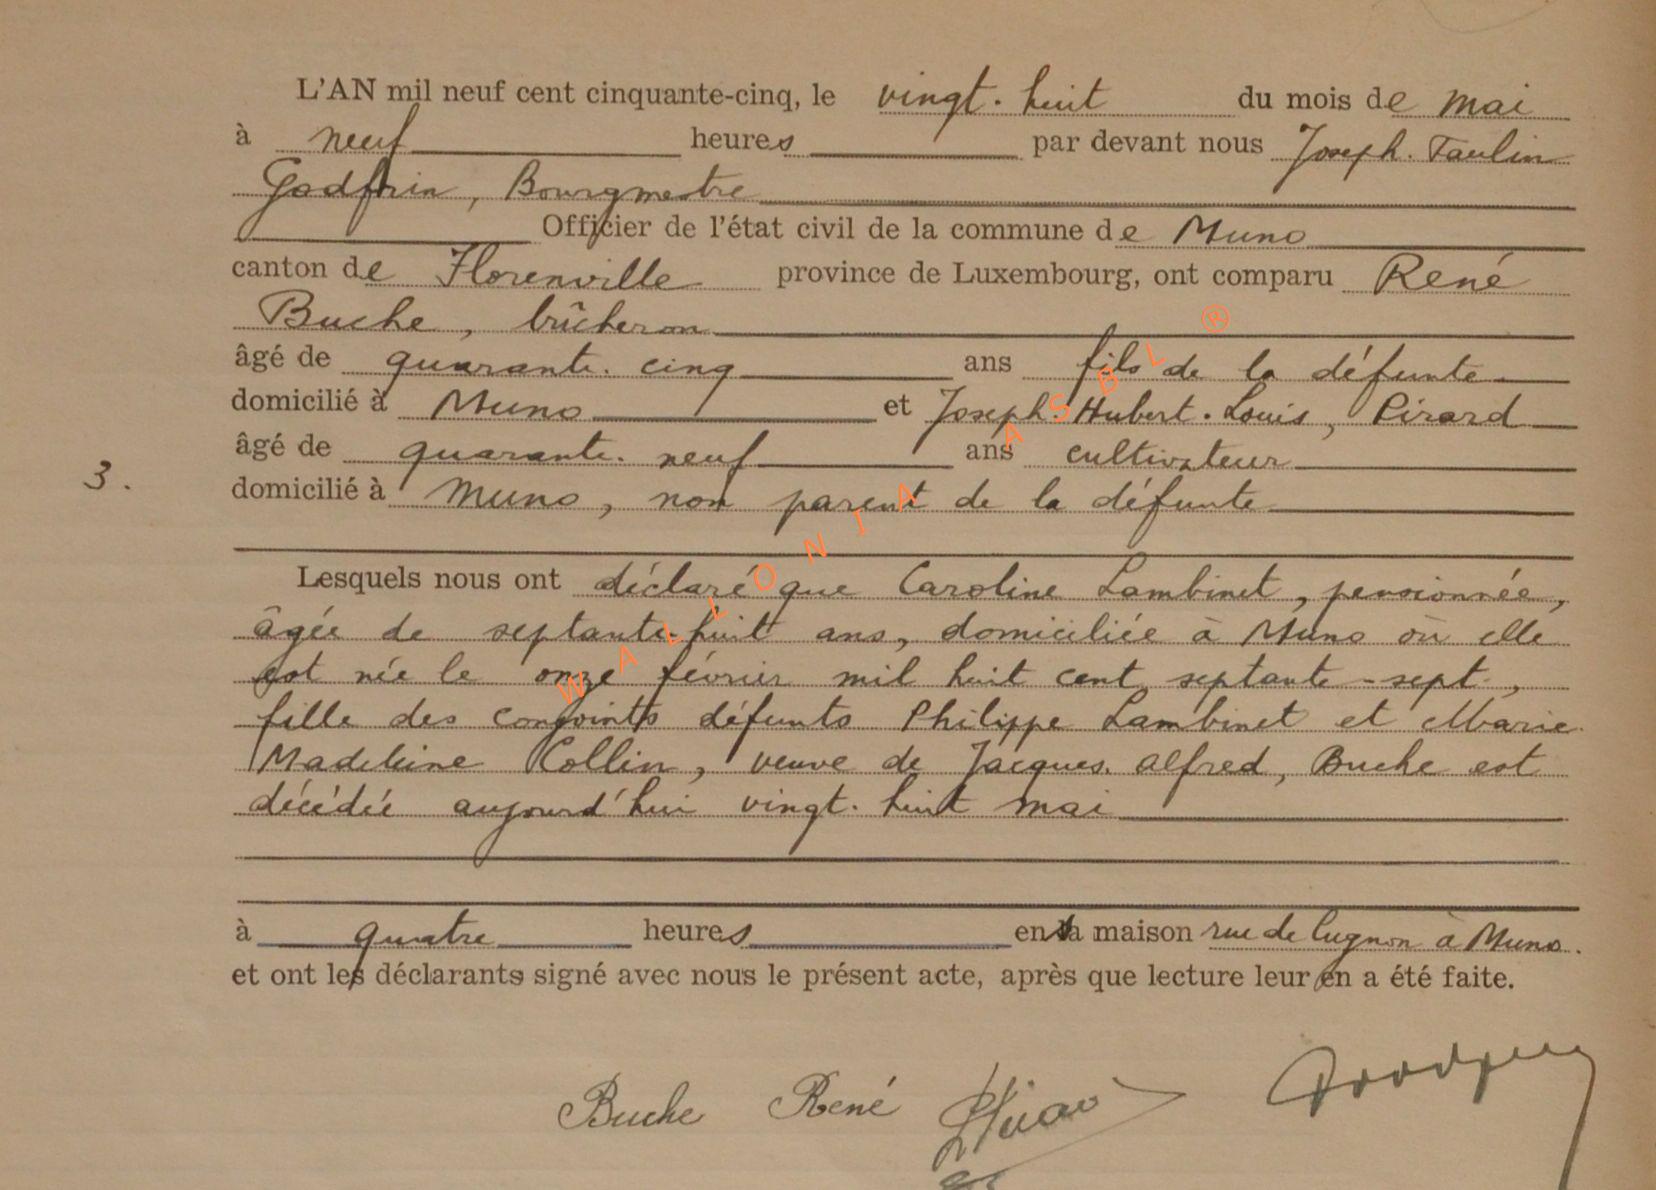 L'AN mil neuf cent cinquante-cinq, le vingt-huit du mois de mai
à neuf heures par devant nous Joseph-Paulin
Godfrin, Bourgmestre
Officier de l'état civil de la commune de Muno
canton de Florenville province de Luxembourg, ont comparu René
Buche, bûcheron
âgé de quarante-cinq ans fils de la défunte
domicilié à Muno et Joseph-Hubert-Louis, Pirard
âgé de quarante-neuf ans cultivateur
3.
domicilié à Muno, non parent de la défunte
Lesquels nous ont déclaré que Caroline Lambinet, pensionnée,
âgée de septante-huit ans, domiciliée à Muno où elle
est née le onze février mil huit cent septante-sept,
fille des conjoints défunts Philippe Lambinet et Marie
Madeleine Collin, veuve de Jacques-Alfred, Buche est
décédée aujourd'hui vingt-huit mai
à quatre heures en la maison rue de Lugnon à Muno.
et ont les déclarants signé avec nous le présent acte, après que lecture leur en a été faite.
Buche René
WALLONIA ASBL ®